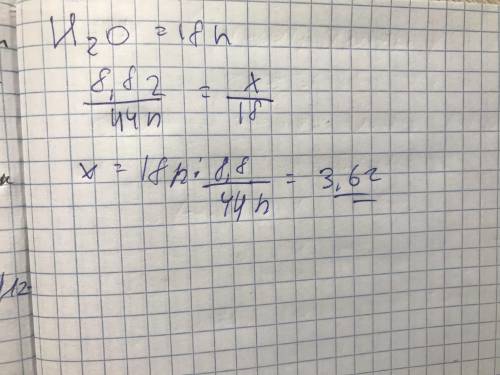 H₂O = 18n
8,8г/44n = x/18
x = 18n · 8,8/44n = 3,6г